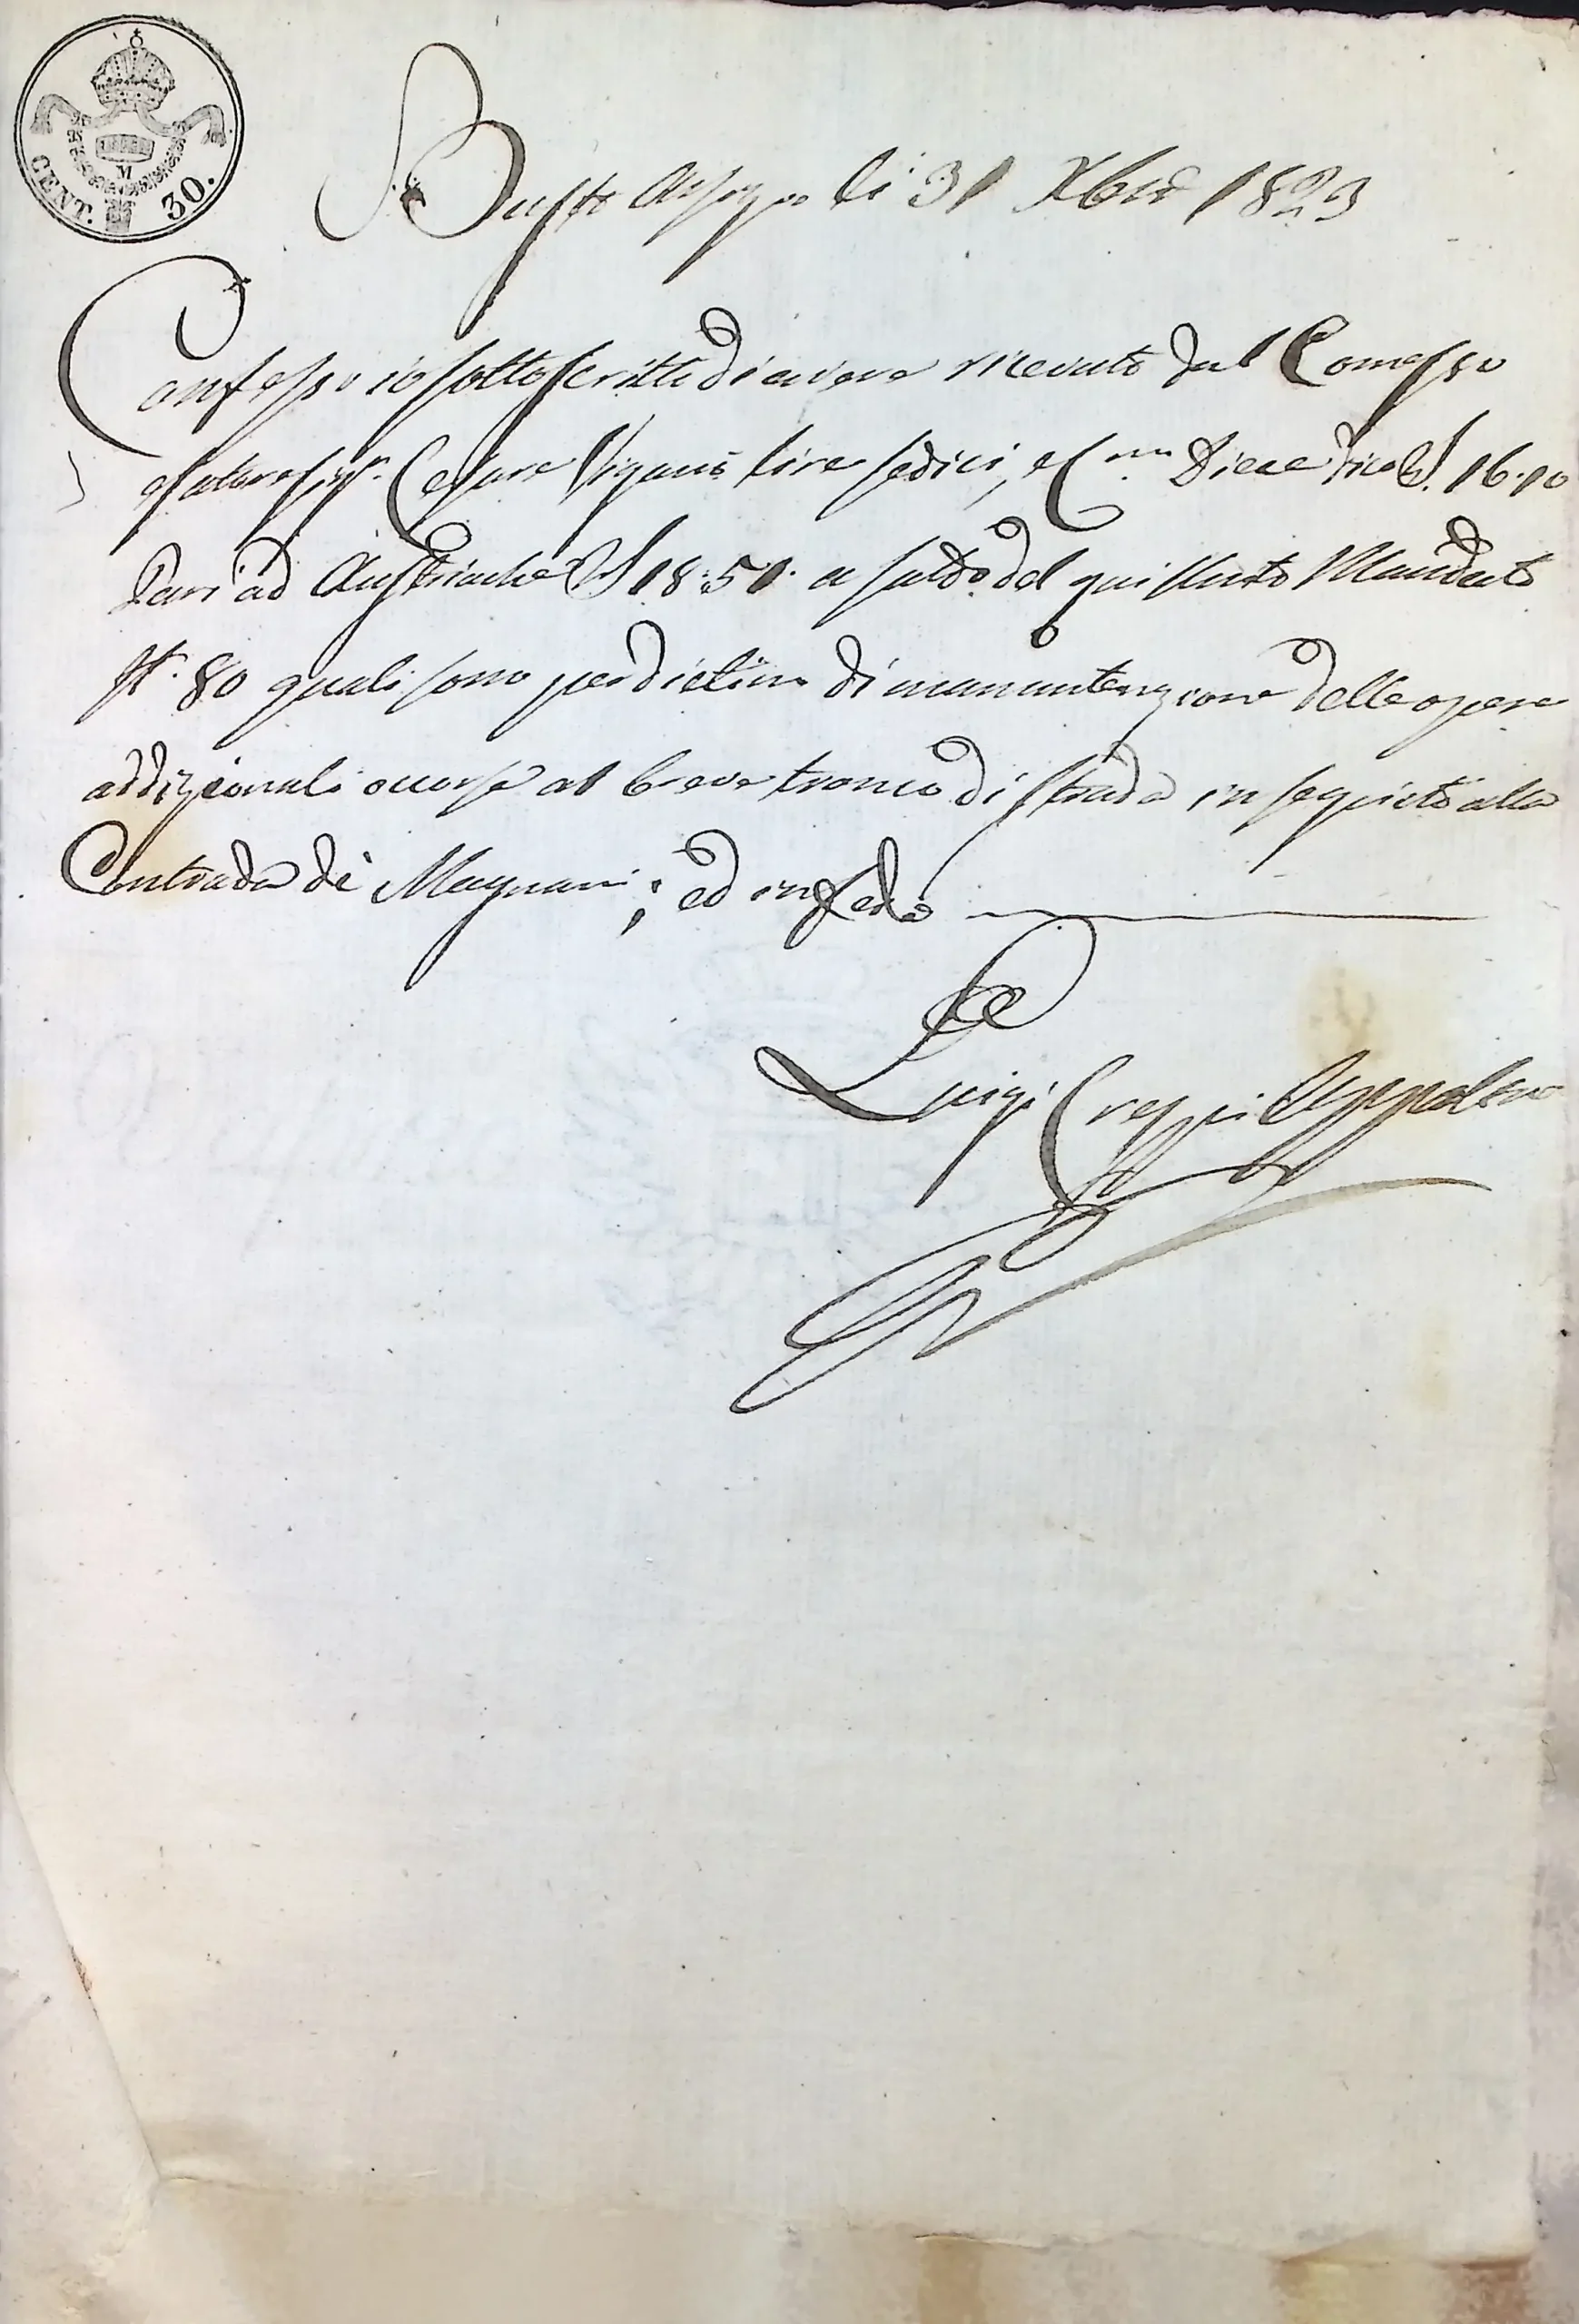 CENT. 30.
M
Busto Arsizio li 31 Xbre 1823
Confesso io sottoscritto di avere ricevuto dal Comesso
esattore Sigr. Cesare Viganò lire sedici, e Cmi Diece dico £. 16.10
Pari ad Austriache £ 18:51. a saldo del quì Unito Mandato
N. 80 quali sono per dietim di manuntenzione delle opere
addizionali occorse al breve tronco di strada in seguito alla
Contrada dè Magnani; ed in fede
Luigi Crespi Appaltre